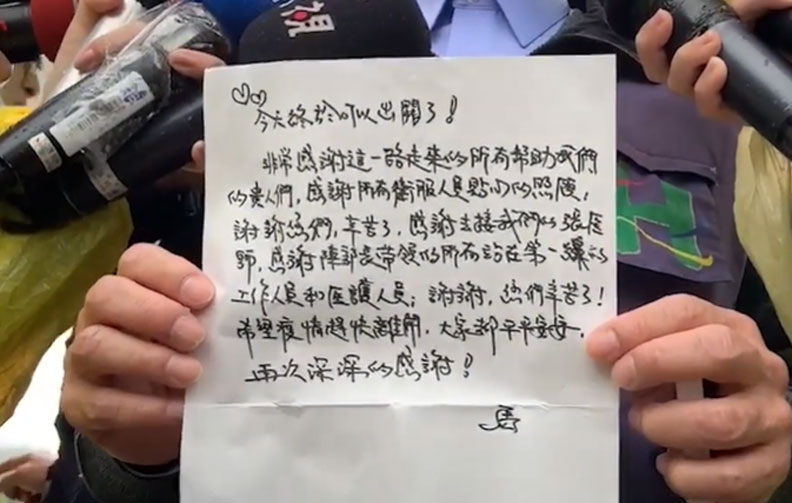 視
今天終於可以出關了!
非常感謝這一路走來的所有幫助我們
的貴人們,感謝所有衛服人員貼心的照顧,
謝謝您們,辛苦了,感謝去接我們的張医
師,感謝陳部長帶領的所有站在第一線的
工作人員和医護人員;謝謝,您們辛苦了!
希望疫情趕快離開,大家都平平安安。
再次深深的感謝!
馬